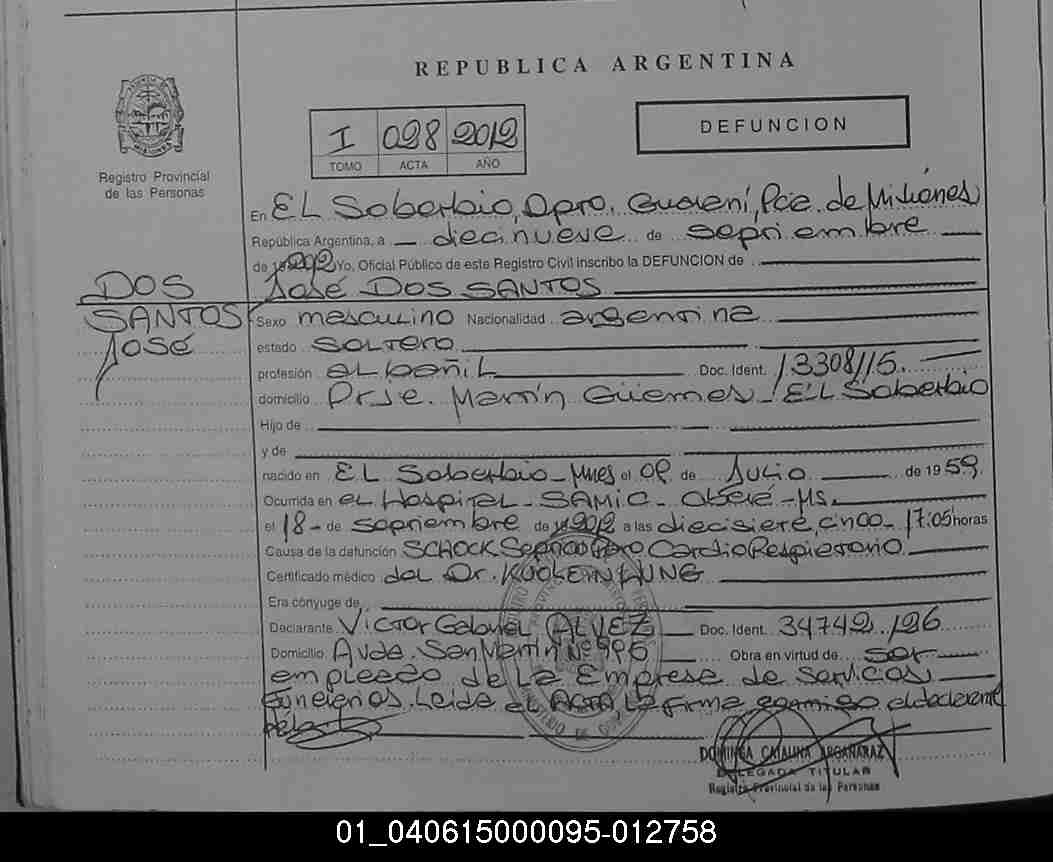 REPUBLICA ARGENTINA
I 028 2012
TOMO ACTA AÑO
DEFUNCION
Registro Provincial
de las Personas
En EL Soberbio, Dpto. Guaraní, Pcia. de Misiones
República Argentina, a diecinueve de septiembre
de 2012 Yo, Oficial Público de este Registro Civil inscribo la DEFUNCION de
José DOS SANTOS
DOS
SANTOS
José
Sexo masculino Nacionalidad argentina
estado soltero
profesión albañil Doc. Ident. 13308115.
domicilio Pje. Martín Güemes - El Soberbio
Hijo de
y de
nacido en EL Soberbio - Mnes el 09 de Julio de 1959.
Ocurrida en el Hospital - SAMIC - Oberá - Ms.
el 18 - de septiembre de 2012 a las diecisiete, cinco - 17:05 horas
Causa de la defunción SCHOCK Septico Paro CardioRespiratorio
Certificado médico del Dr.
Era cónyuge de
Declarante Victor Gabriel ALVEZ Doc. Ident. 34742.126
Domicilio Avda. San Martín Nº Obra en virtud de ser
empleado de la Empresa de Servicios
Funerarios. Leida el ACTA, la firma conmigo el declarante
DOMINGA CATALINA ARGAÑARAZ
DELEGADA TITULAR
Registro Provincial de las Personas
01_040615000095-012758